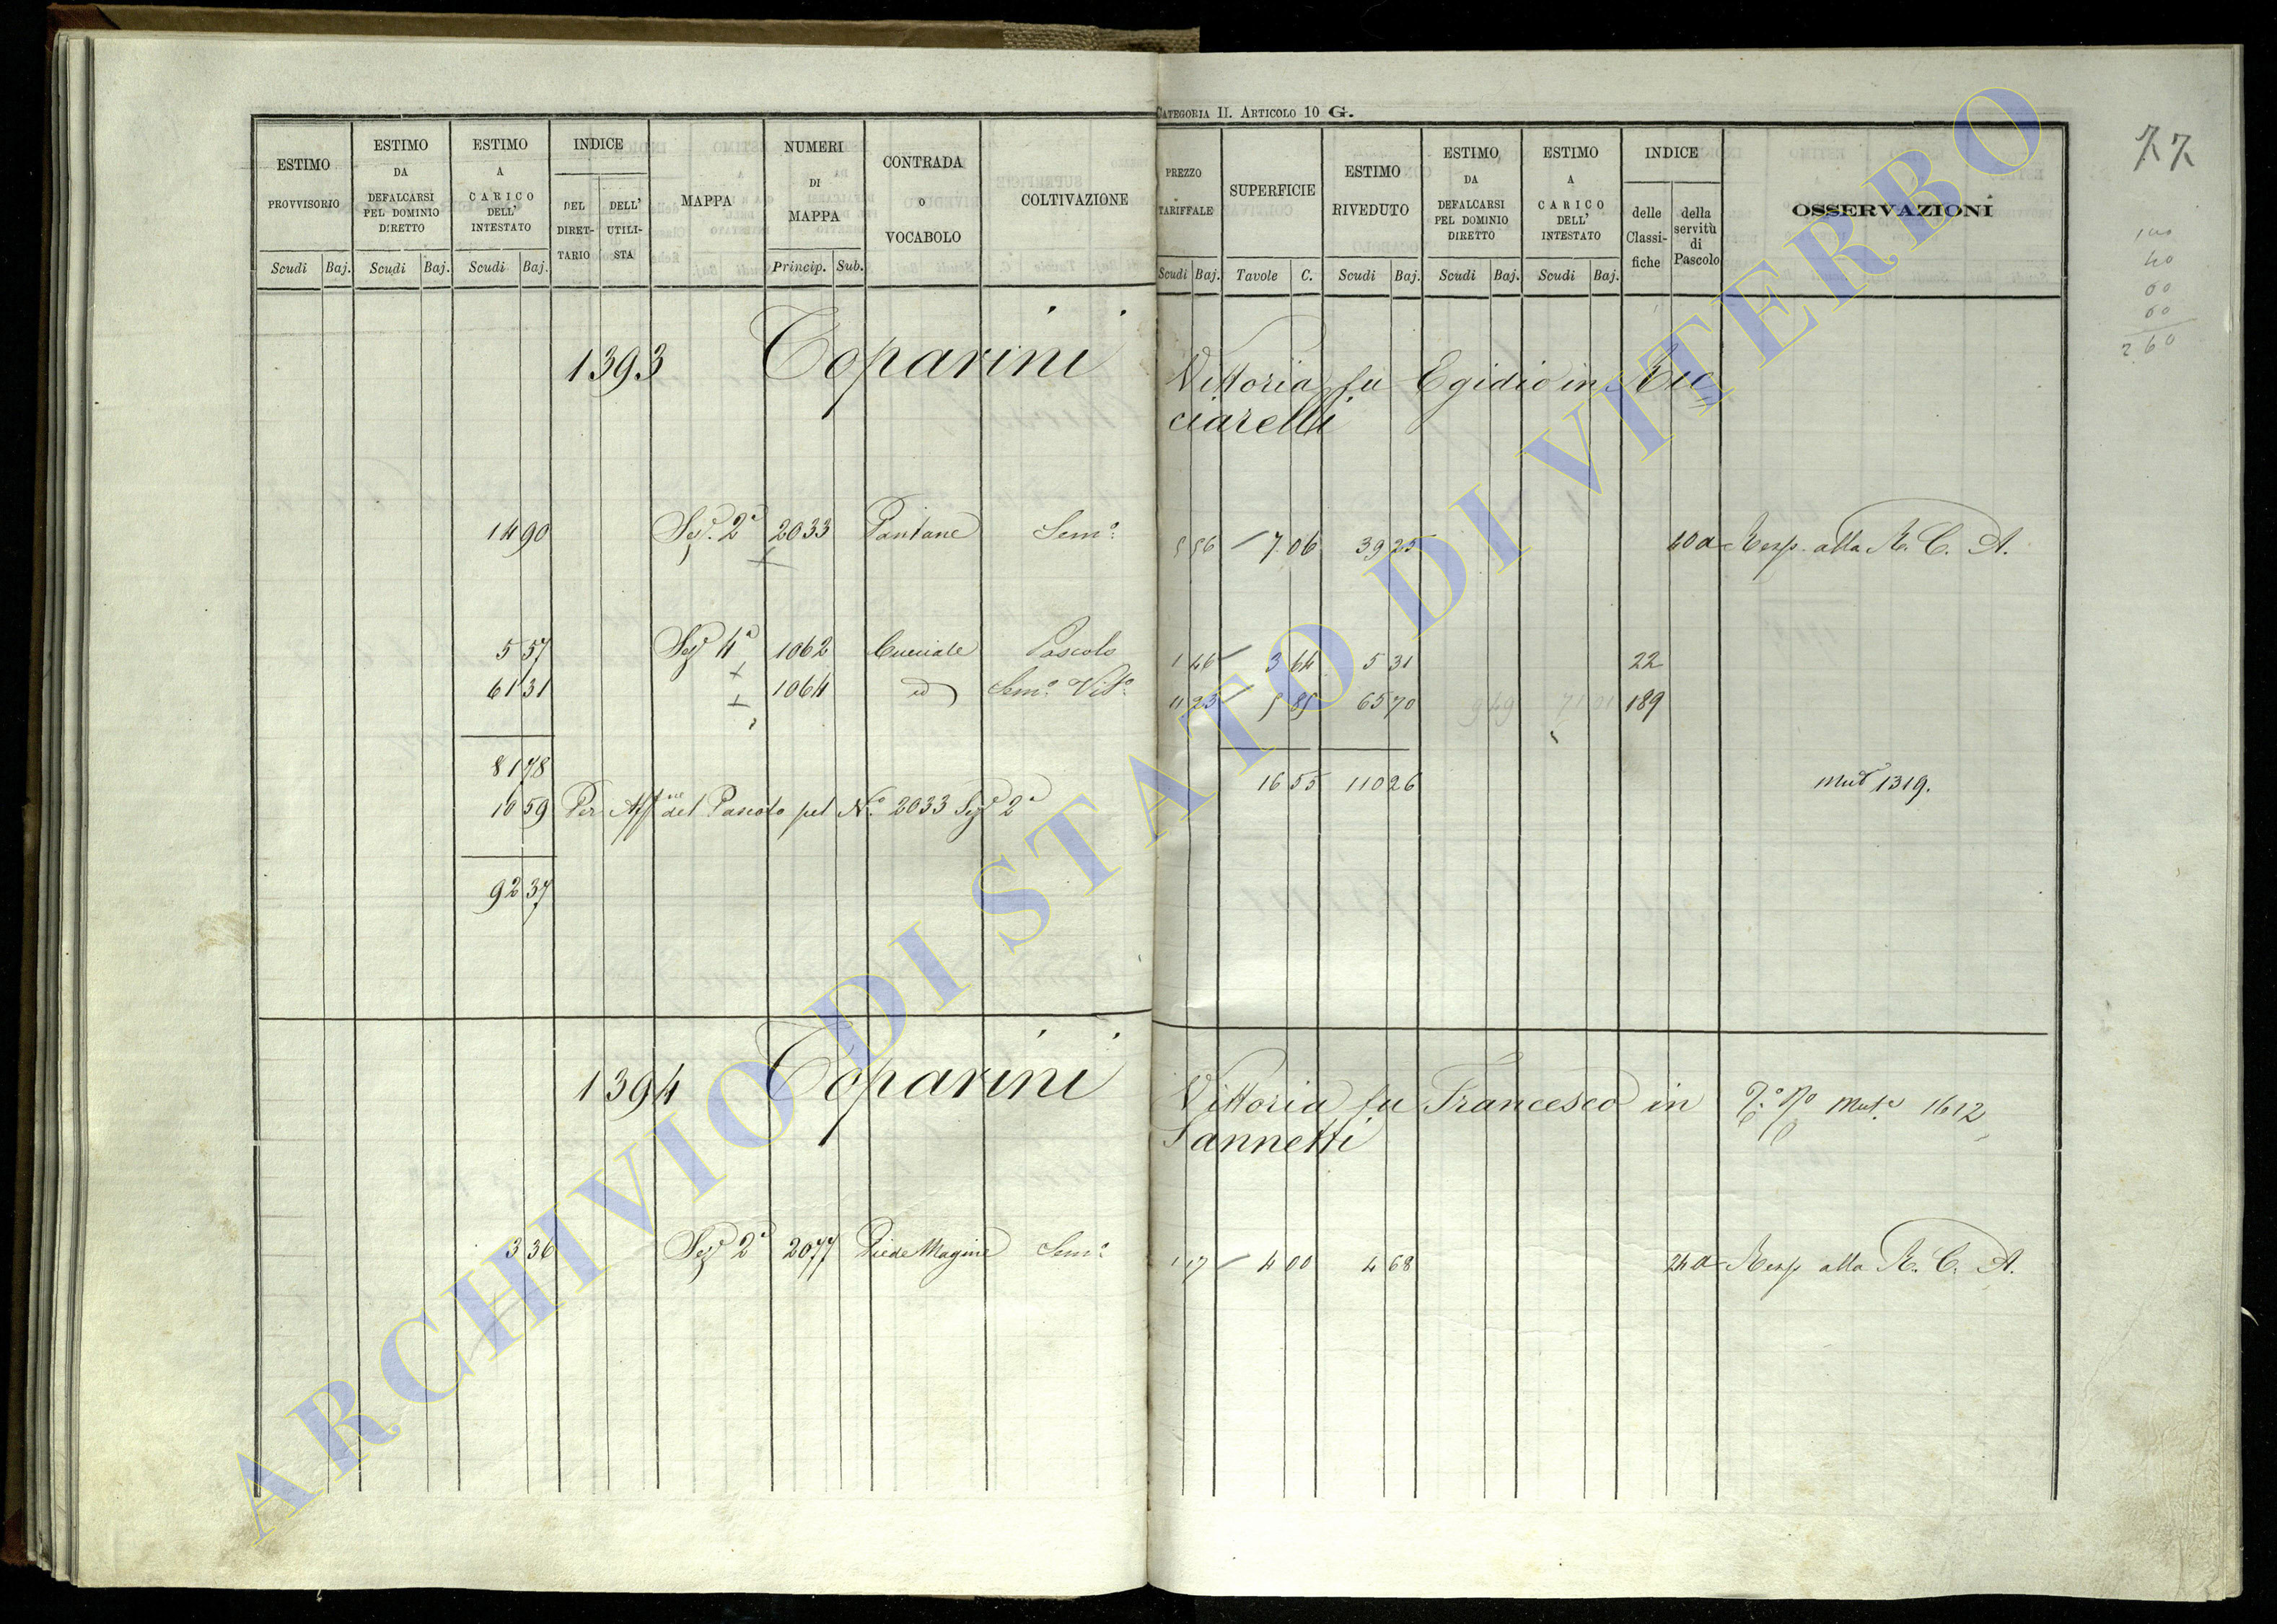 CATEGORIA II. ARTICOLO 10 G.
77
ESTIMO PROVVISORIO Scudi Baj.
ESTIMO DA DEFALCARSI PEL DOMINIO DIRETTO Scudi Baj.
ESTIMO A CARICO DELL' INTESTATO Scudi Baj.
INDICE DEL DIRETTARIO DELL' UTILISTA
MAPPA
NUMERI DI MAPPA Princip. Sub.
CONTRADA O VOCABOLO
COLTIVAZIONE
PREZZO TARIFFALE Scudi Baj.
SUPERFICIE Tavole C.
ESTIMO RIVEDUTO Scudi Baj.
ESTIMO DA DEFALCARSI PEL DOMINIO DIRETTO Scudi Baj.
ESTIMO A CARICO DELL' INTESTATO Scudi Baj.
INDICE delle Classifiche della servitù di Pascolo
OSSERVAZIONI
100
40
60
60
260
1393 Toparini Vittoria fu Egidio in Ric
ciarelli
14 90 Sez. 2a 2033 Pantane Semo. 5 56 7 06 39 25 40 a Resp. alla R. C. A.
5 57 Sez 4a 1062 Cucciale Pascolo 1 46 3 64 5 31 22
61 31 1064 id Semo. Vito. 11 23 5 85 65 70 9 49 71 01 189
81 78 16 55 110 26 Mut 1319.
10 59 Per Aff.ne del Pascolo pel No. 2033 Sez 2a
92 37
1394 Toparini Vittoria fu Francesco in Muta 1612
Sannetti
3 36 Sez 2a 2077 Piede Magine Semo. 1 17 4 00 4 68 24 a Resp alla R. C. A.
ARCHIVIO DI STATO DI VITERBO